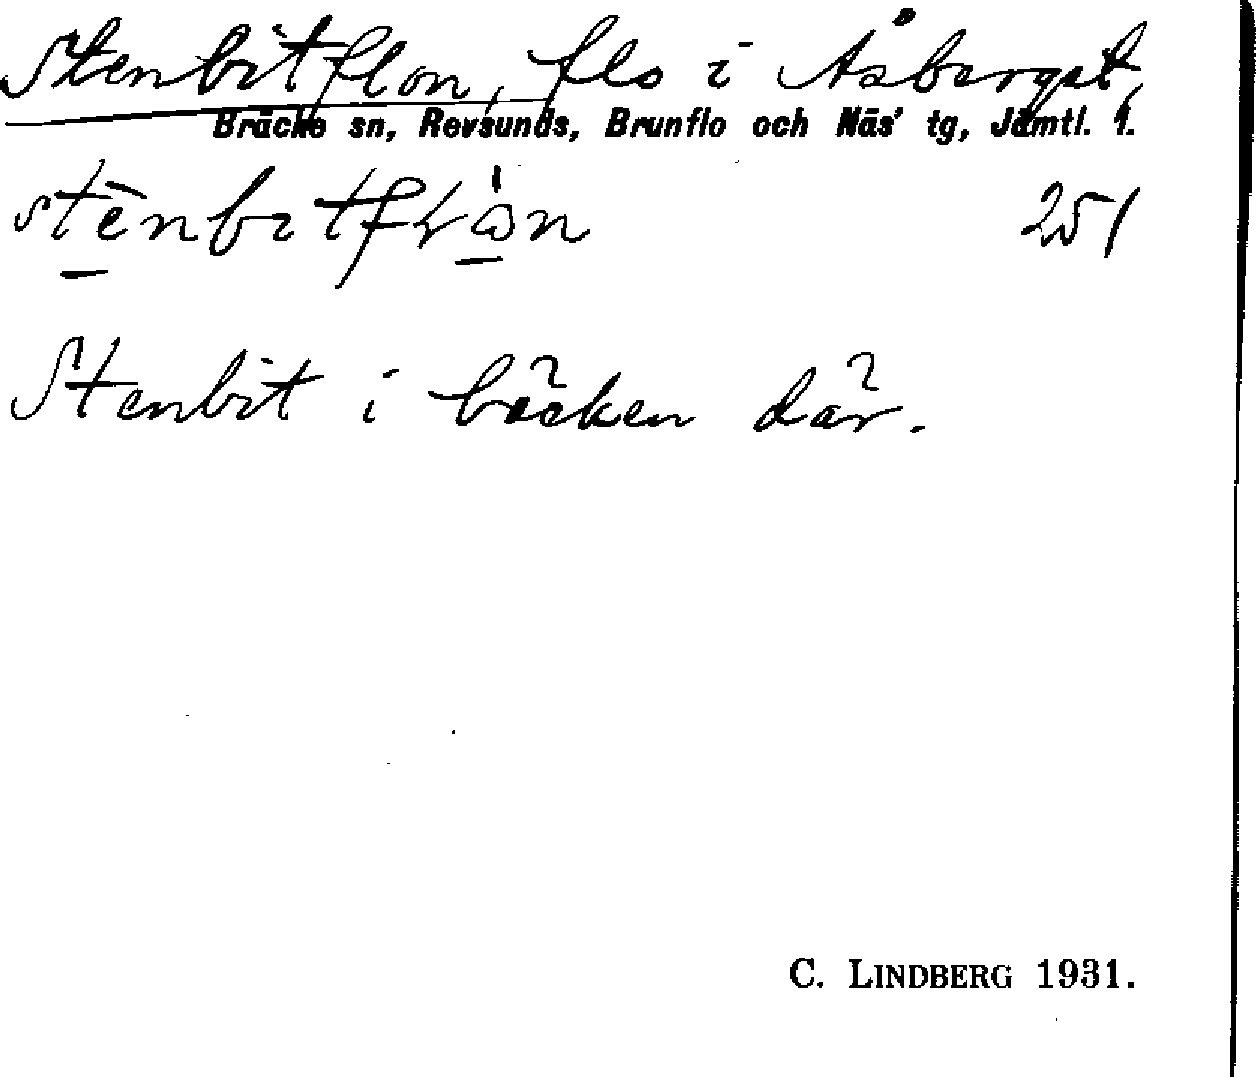 Stenbitflon, flo i Åsberget,
Bräcke sn, Revsunds, Brunflo och Näs' tg, Jämtl. l.
251
Stenbit i bäcken där.
C. LINDBERG 1931.